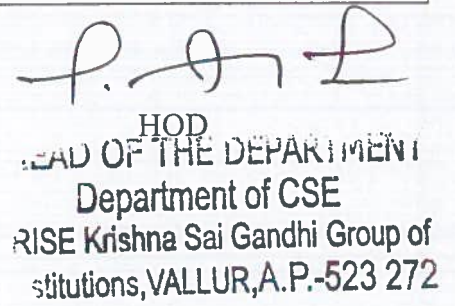 HOD
HEAD OF THE DEPARTMENT
Department of CSE
RISE Krishna Sai Gandhi Group of
stitutions, VALLUR, A.P.-523 272